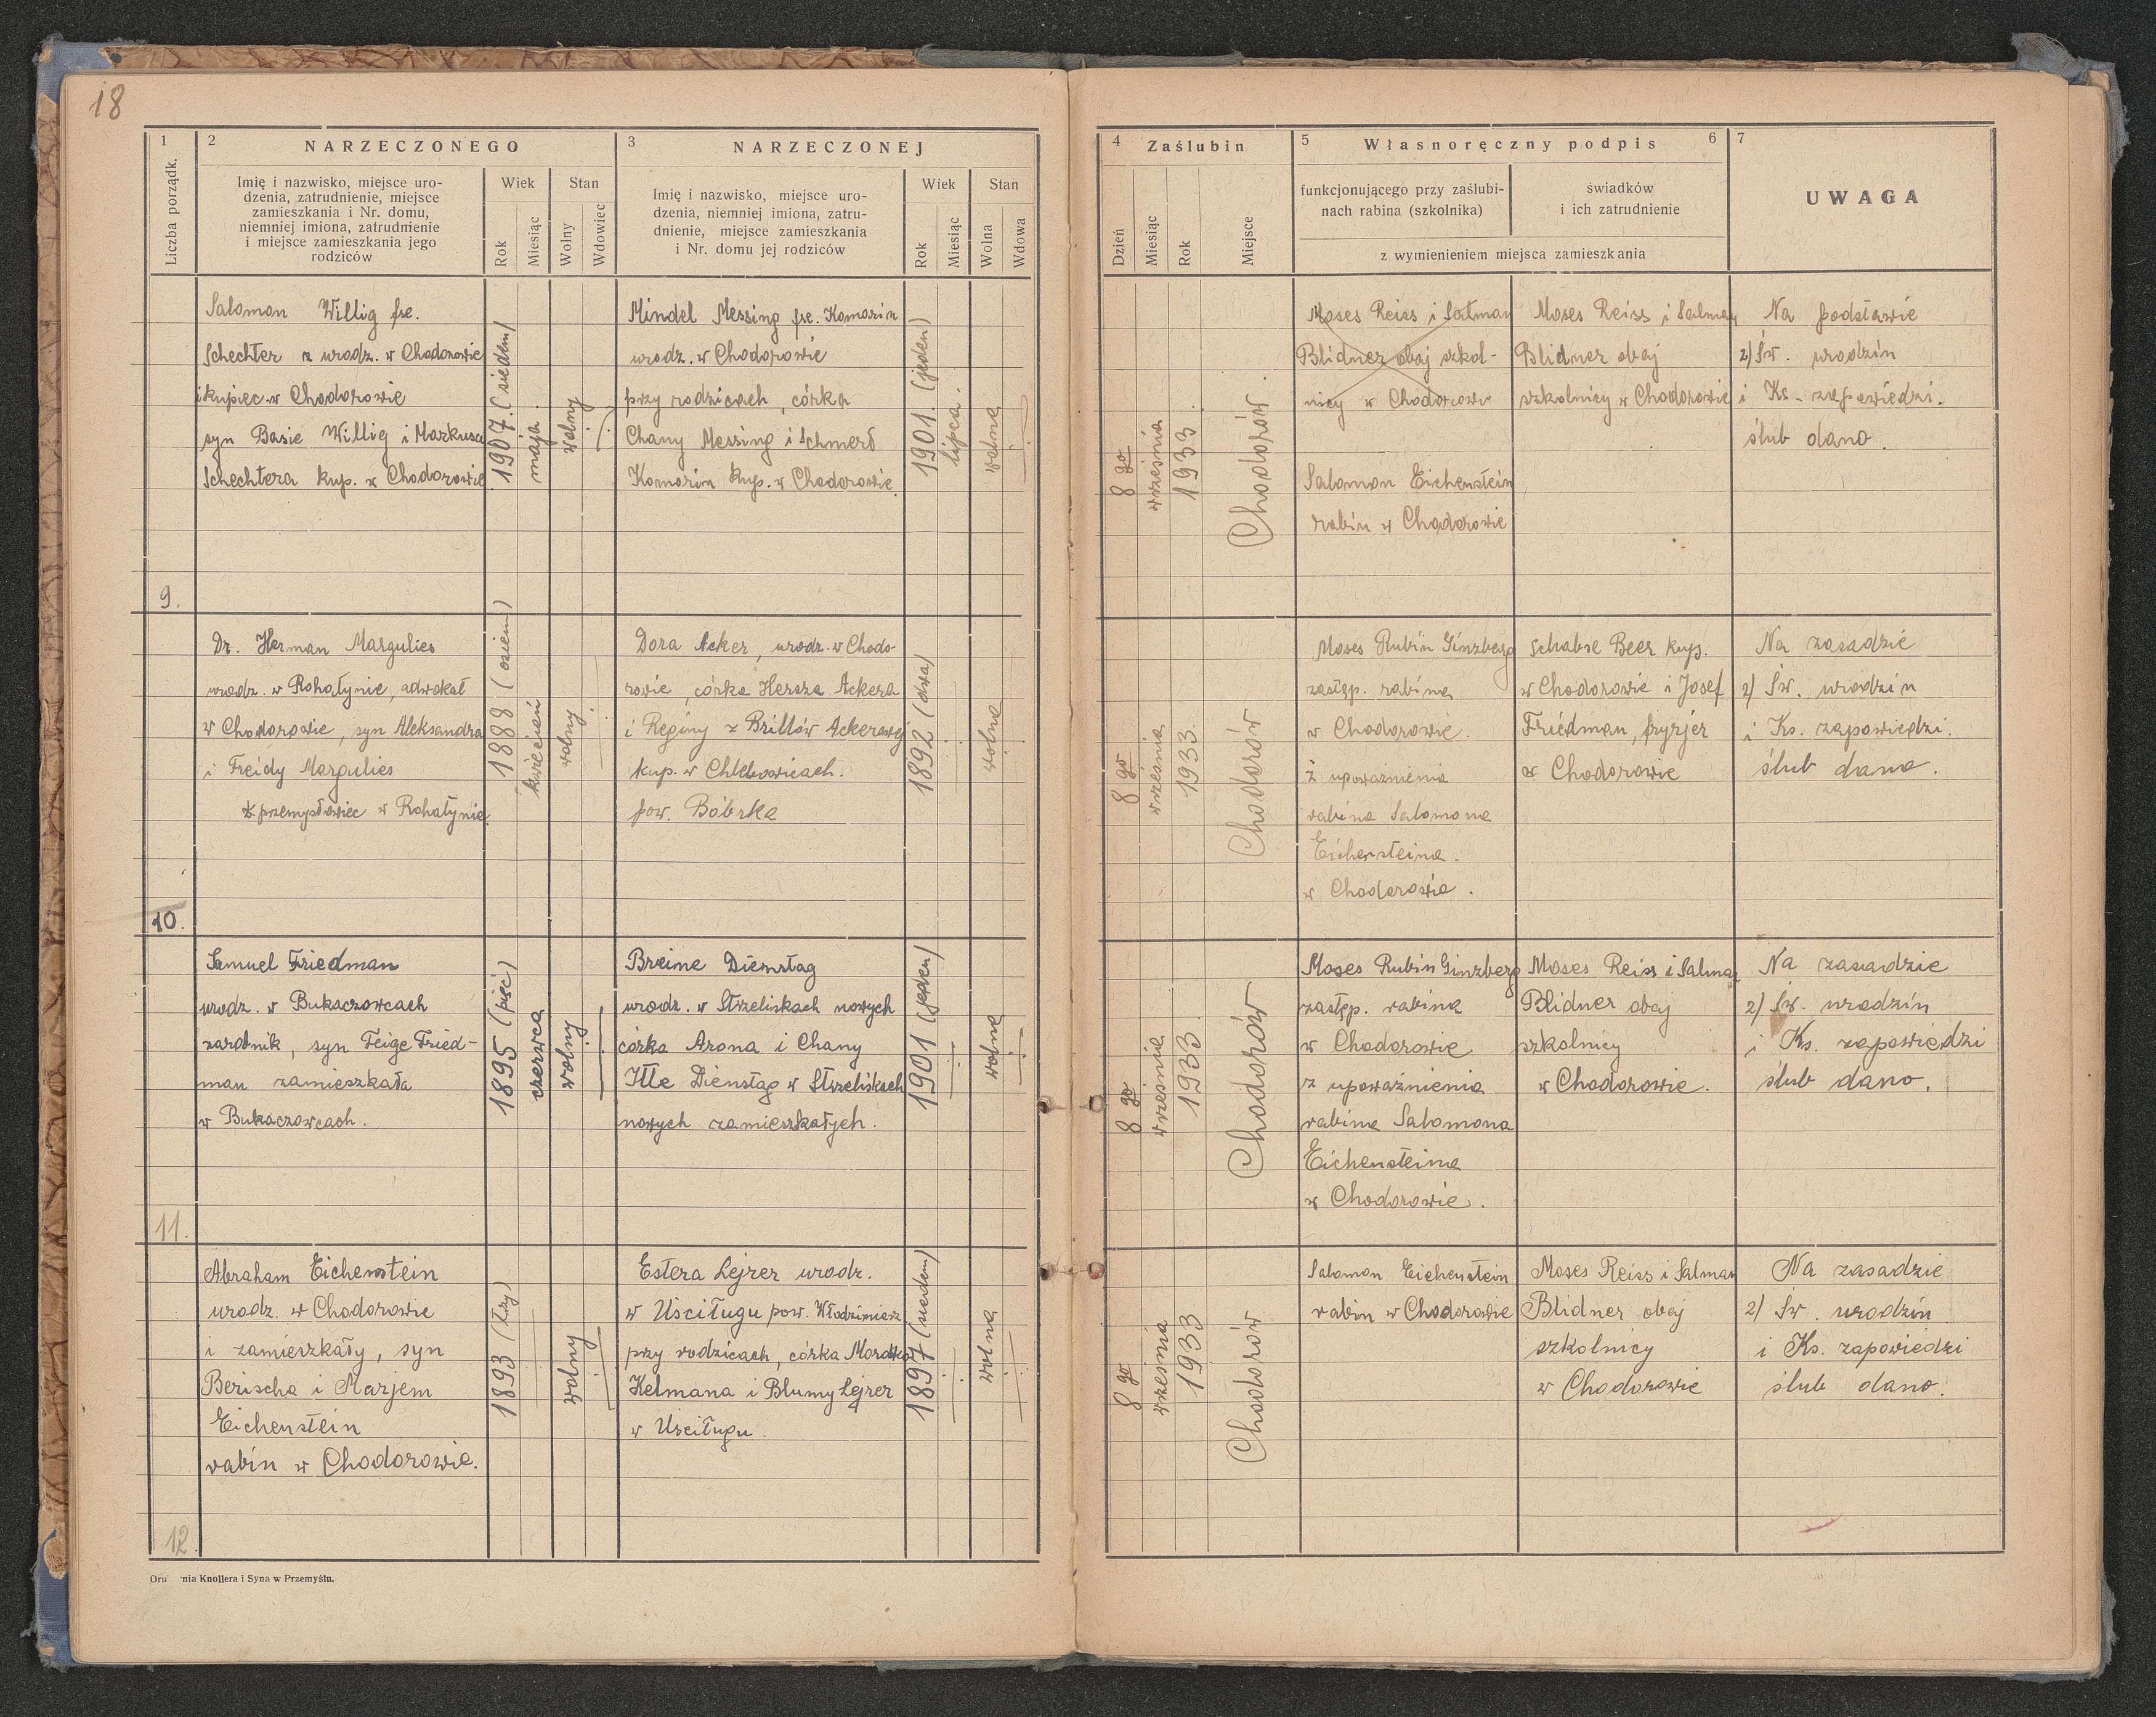 18
1
Liczba porządk.
2
NARZECZONEGO
Imię i nazwisko, miejsce uro-
dzenia, zatrudnienie, miejsce
zamieszkania i Nr. domu,
niemniej imiona, zatrudnienie
i miejsce zamieszkania jego
rodziców
Wiek
Rok
Miesiąc
Stan
Wolny
Wdowiec
3
NARZECZONEJ
Imię i nazwisko, miejsce uro-
dzenia, niemniej imiona, zatru-
dnienie, miejsce zamieszkania
i Nr. domu jej rodziców
Wiek
Rok
Miesiąc
Stan
Wolna
Wdowa
4
Zaślubin
Dzień
Miesiąc
Rok
Miejsce
5
Własnoręczny podpis
6
funkcjonującego przy zaślubi-
nach rabina (szkolnika)
świadków
i ich zatrudnienie
z wymienieniem miejsca zamieszkania
7
UWAGA
9.
Salomon Willig fse.
Schechter urodz. w Chodorowie
i kupiec w Chodorowie
syn Basie Willig i Markusa
Schechtera kup. w Chodorowie
1907. (siedem)
maja
wolny
Mindel Messing fse. Komarin
urodz. w Chodorowie
przy rodzicach, córka
Chany Messing i Schmerl
Komarin kup. w Chodorowie
1901. (jeden)
lipca.
wolna
8 go
września
1933.
Chodorów.
Moses Reiss i Salman
Blidner obaj szkol-
nicy w Chodorowie
Salomon Eichenstein
rabin w Chodorowie
Moses Reiss i Salman
Blidner obaj
szkolnicy w Chodorowie
Na podstawie
2) Św. urodzin
i Ks. zapowiedzi.
ślub dano.
10.
Dr. Herman Margulies
urodz. w Rohatynie, adwokat
w Chodorowie, syn Aleksandra
i Freidy Margulies
przemysłowiec w Rohatynie.
1888 (osiem)
kwiecień
wolny
Dora Acker, urodz. w Chodo-
rowie, córka Hersza Ackera
i Reginy z Brillów Ackerowej
kup. w Chlebowicach.
pow. Bóbrka
1892 (dwa)
wolna
8 go
września
1933.
Chodorów
Moses Rubin Ginzberg
zastęp. rabina
w Chodorowie.
z upoważnienia
rabina Salomona
Eichensteina.
w Chodorowie.
Schabse Beer kup.
w Chodorowie i Josef
Friedman, fryzjer
w Chodorowie
Na zasadzie
2) Św. urodzin
i Ks. zapowiedzi.
ślub dano.
11.
Samuel Friedman
urodz. w Bukaczowcach
zarobnik, syn Feige Fried-
man zamieszkała
w Bukaczowcach.
1895 (pięć)
czerwca
wolny
Breine Dienstag
urodz. w Strzeliskach nowych
córka Arona i Chany
Itte Dienstag w Strzeliskach
nowych zamieszkałych.
1901 (jeden)
wolna
8 go
września
1933.
Chodorów
Moses Rubin Ginzberg
zastęp. rabina
w Chodorowie
z upoważnienia
rabina Salomona
Eichensteina
w Chodorowie.
Moses Reiss i Salman
Blidner obaj
szkolnicy
w Chodorowie.
Na zasadzie
2) Św. urodzin
i Ks. zapowiedzi
ślub dano.
12.
Abraham Eichenstein
urodz. w Chodorowie
i zamieszkały, syn
Berischa i Marjem
Eichenstein
rabin w Chodorowie.
1893 (trzy)
wolny
Estera Lejrer urodz.
w Uściługu pow. Włodzimierz
przy rodzicach, córka
Kelmana i Blumy Lejrer
w Uściługu.
1897 (siedem)
wolna
8 go
września
1933
Chodorów
Salomon Eichenstein
rabin w Chodorowie
Moses Reiss i Salman
Blidner obaj
szkolnicy
w Chodorowie
Na zasadzie
2) Św. urodzin
i Ks. zapowiedzi
ślub dano.
nia Knollera i Syna w Przemyślu.